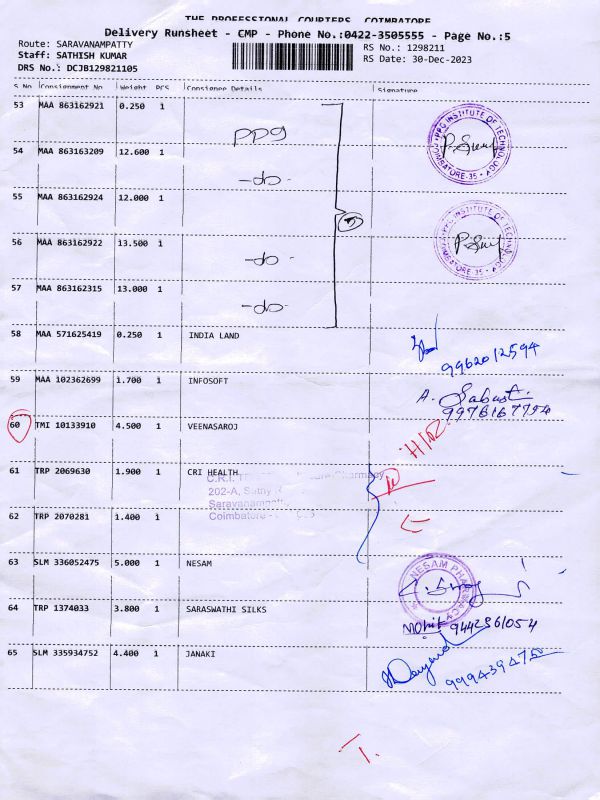 THE PROFESSIONAL COURIERS, COIMBATORE
Delivery Runsheet - CMP - Phone No.:0422-3505555 - Page No.:5
Route: SARAVANAMPATTY RS No.: 1298211
Staff: SATHISH KUMAR RS Date: 30-Dec-2023
DRS No.: DCJB129821105
S No Consignment No Weight PCS Consignee Details Signature
53 MAA 863162921 0.250 1 PPG
PPG INSTITUTE OF TECHNOLOGY COIMBATORE-35
54 MAA 863163209 12.600 1 -do-
55 MAA 863162924 12.000 1
5
PPG INSTITUTE OF TECHNOLOGY COIMBATORE-35
56 MAA 863162922 13.500 1 -do-
57 MAA 863162315 13.000 1 -do-
58 MAA 571625419 0.250 1 INDIA LAND
9962012594
59 MAA 102362699 1.700 1 INFOSOFT
9976167794
60 TMI 10133910 4.500 1 VEENASAROJ
61 TRP 2069630 1.900 1 CRI HEALTH
C.R.I. Pharmacy
202-A, Sathy
Saravanampatti
Coimbatore
62 TRP 2070281 1.400 1
63 SLM 336052475 5.000 1 NESAM
NESAM PHARMACY
64 TRP 1374033 3.800 1 SARASWATHI SILKS
Mohit 9442361054
65 SLM 335934752 4.400 1 JANAKI
999439475
T.